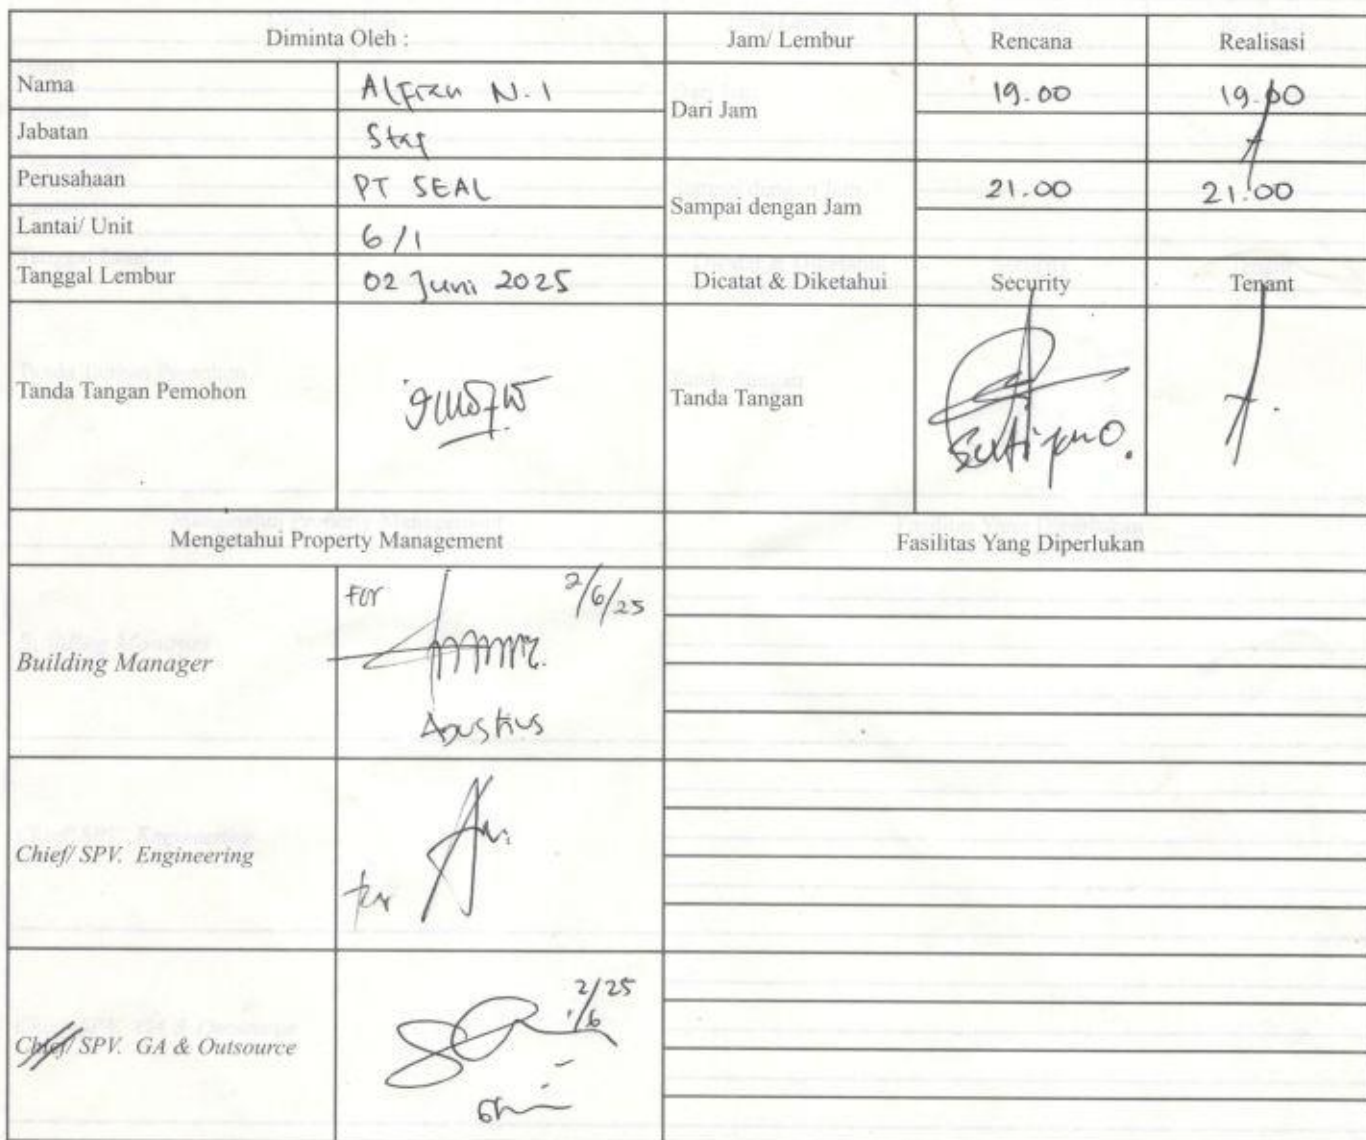 Diminta Oleh :
Jam/ Lembur
Rencana
Realisasi
Nama
Alfian N. I
Dari Jam
19.00
19.00
Jabatan
Staf
Perusahaan
PT SEAL
Sampai dengan Jam
21.00
21.00
Lantai/ Unit
6/1
Tanggal Lembur
02 Juni 2025
Dicatat & Diketahui
Security
Tenant
Tanda Tangan Pemohon
Tanda Tangan
Mengetahui Property Management
Fasilitas Yang Diperlukan
Building Manager
For
2/6/25
Chief/ SPV. Engineering
for
Chief/ SPV. GA & Outsource
2/25
/6